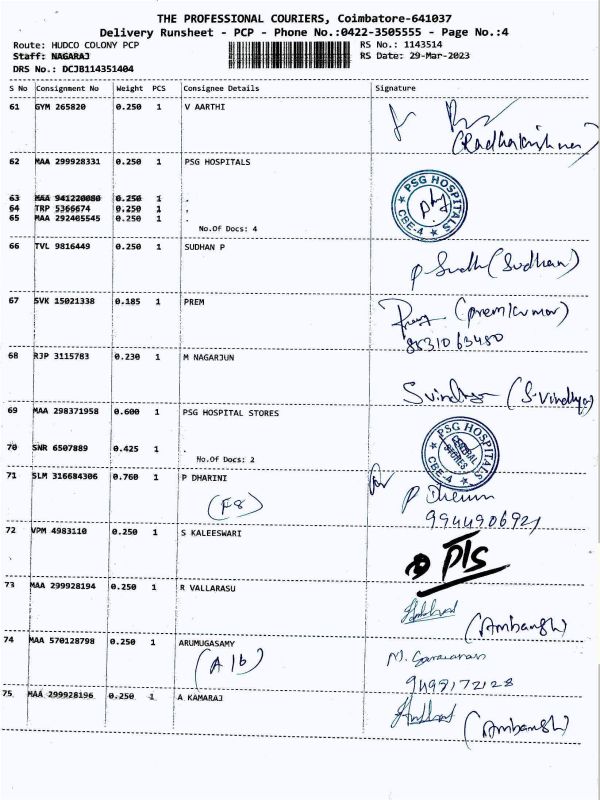 THE PROFESSIONAL COURIERS, Coimbatore-641037
Delivery Runsheet - PCP - Phone No.:0422-3505555 - Page No.:4
Route: HUDCO COLONY PCP RS No.: 1143514
Staff: NAGARAJ RS Date: 29-Mar-2023
DRS No.: DCJB114351404
S No Consignment No Weight PCS Consignee Details Signature
61 GYM 265820 0.250 1 V AARTHI
(Radhakrishnan)
62 MAA 299928331 0.250 1 PSG HOSPITALS
PSG HOSPITALS CBE-4
63 MAA 941220080 0.250 1 .
64 TRP 5366674 0.250 1 .
65 MAA 292405545 0.250 1 .
No.Of Docs: 4
66 TVL 9816449 0.250 1 SUDHAN P
P Sudh (Sudhan)
67 SVK 15021338 0.185 1 PREM
(premkumar)
8531063480
68 RJP 3115783 0.230 1 M NAGARJUN
Svindhya (S.vindhya)
69 MAA 298371958 0.600 1 PSG HOSPITAL STORES
PSG HOSPITALS CENTRAL STORES CBE-4
70 SNR 6507889 0.425 1 .
No.Of Docs: 2
71 SLM 316684306 0.760 1 P DHARINI
(F8)
9944906921
72 VPM 4983110 0.250 1 S KALEESWARI
PLS
73 MAA 299928194 0.250 1 R VALLARASU
(Ambangh)
74 MAA 570128798 0.250 1 ARUMUGASAMY
(A1b) M. Saravanan
9499172128
75 MAA 299928196 0.250 1 A KAMARAJ
(Ambangh)